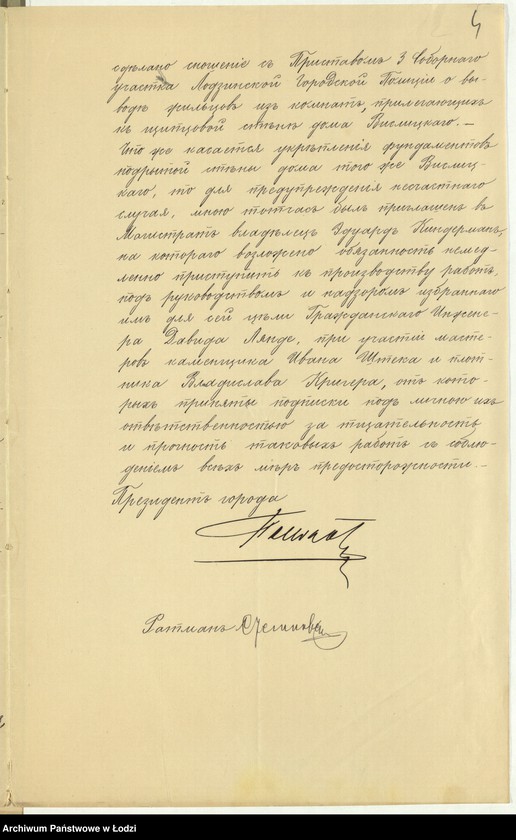 4
сдѣлано сношеніе съ Приставомъ 3 Соборнаго
участка Лодзинской Городской Полиціи о вы-
водѣ жильцовъ изъ комнатъ, прилегающихъ
къ щитцовой стѣнѣ дома Вислицкаго. –
Что же касается укрѣпленія фундаментовъ
подрытой стѣны дома того же Вислиц-
каго, то для предупрежденія несчастнаго
случая, мною тотчасъ былъ приглашенъ въ
Магистратъ владѣлецъ Эдуардъ Киндерманъ,
на котораго возложено обязанность немед-
ленно приступить къ производству работъ,
подъ руководствомъ и надзоромъ избраннаго
имъ для сей цѣли Гражданскаго Инжене-
ра Давида Лянде, при участіи масте-
ровъ каменщика Ивана Штека и плот-
ника Владислава Кригера, отъ кото-
рыхъ приняты подписки подъ личною ихъ
отвѣтственностью за тщательность
и прочность таковыхъ работъ съ соблю-
деніемъ всѣхъ мѣръ предосторожности. –
Президентъ города
Ратманъ
Archiwum Państwowe w Łodzi